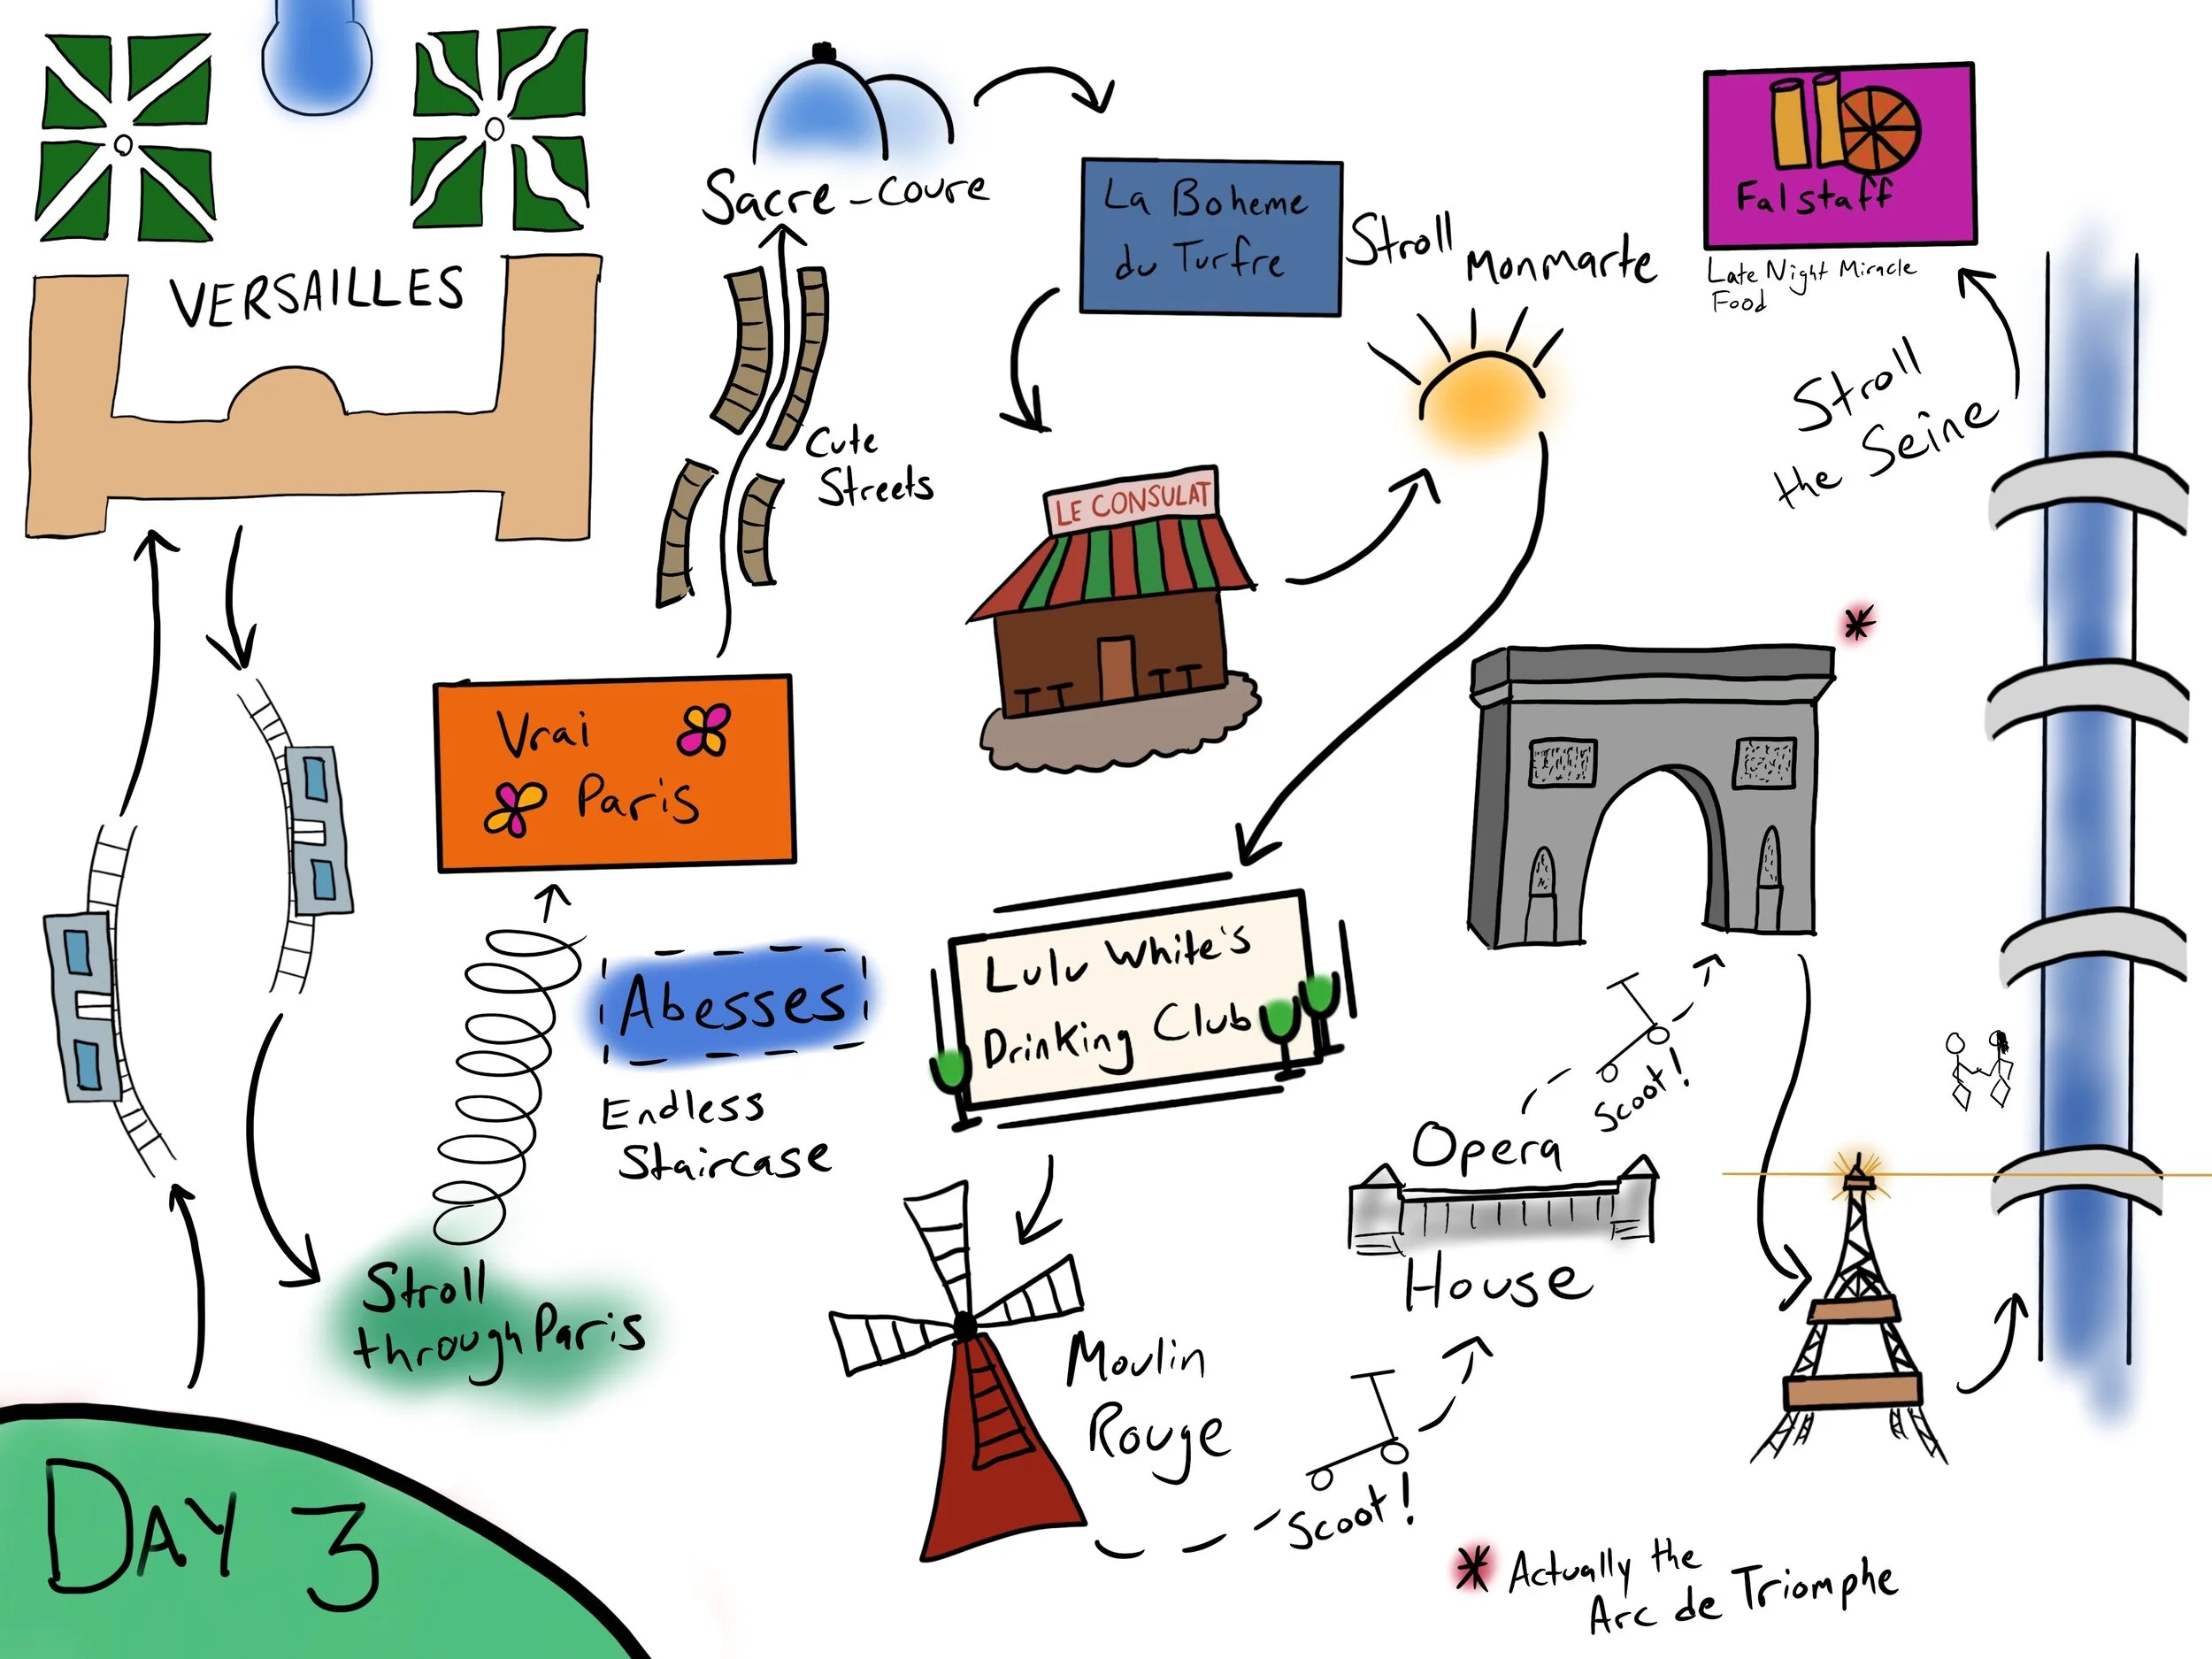 VERSAILLES
Sacre-Coure
La Boheme
du Turfre
Stroll
Monmarte
Falstaff
Late Night Miracle
Food
Stroll
the Seine
Cute
Streets
LE CONSULAT
*
Vrai
Paris
Abesses
Endless
Staircase
Lulu White's
Drinking Club
Scoot!
Opera
House
Stroll
through Paris
Moulin
Rouge
Scoot!
DAY 3
* Actually the
Arc de Triomphe